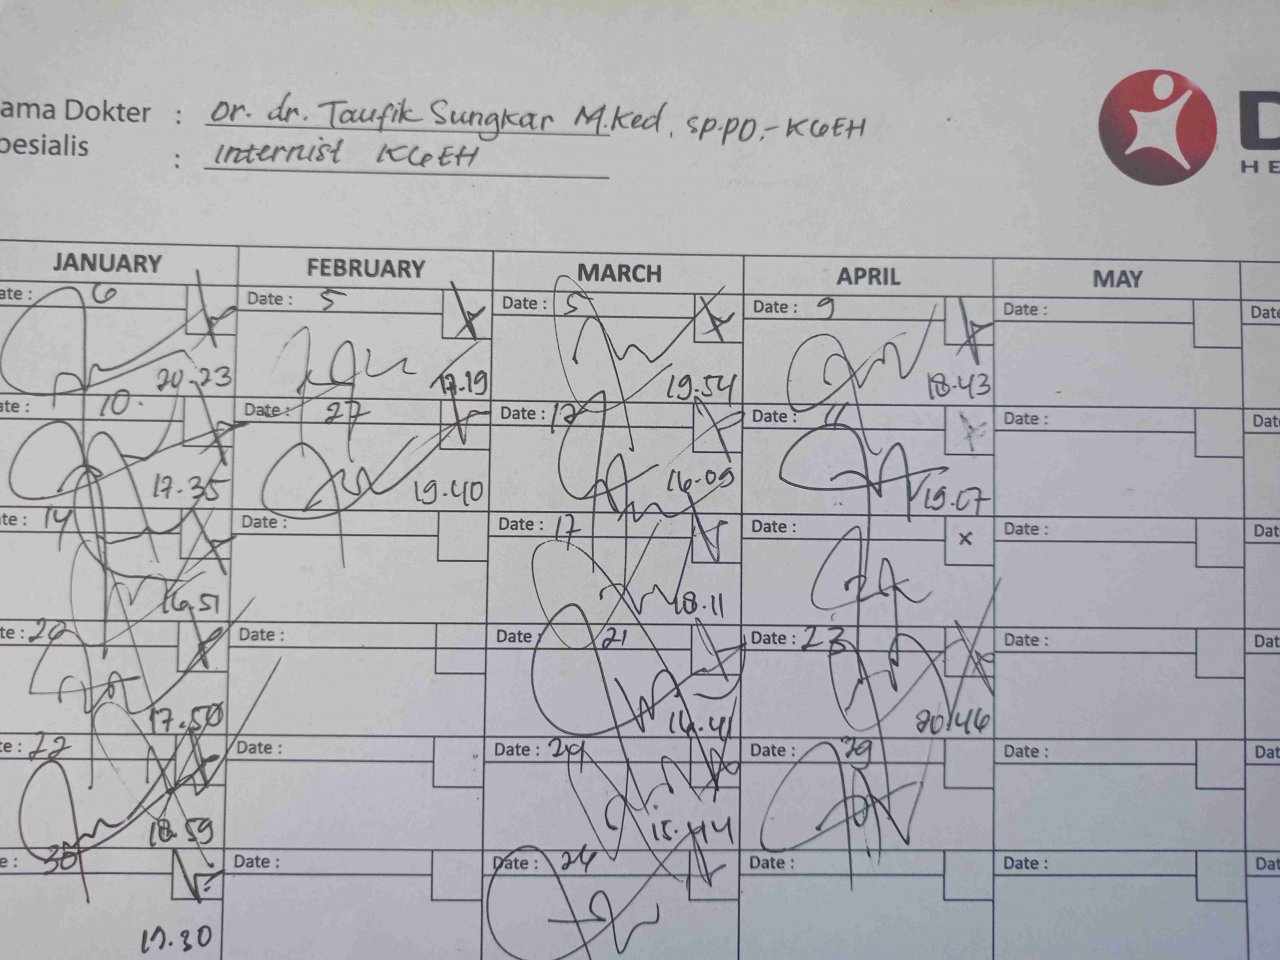 ama Dokter : Dr. dr. Taufik Sungkar M.Ked. Sp.PD.-KGEH
pesialis : Internist KGEH
D
HE
JANUARY FEBRUARY MARCH APRIL MAY
ate : 6 Date : 5 Date : 5 Date : 9 Date : Date
20.23 17.19 19.54 18.43
ate : 10. Date : 27 Date : 12 Date : 11 Date : Dat
17.35 19.40 16.09 19.07
ate : 14 Date : Date : 17 Date : × Date : Dat
16.51 18.11
te : 20 Date : Date : 21 Date : 23 Date : Dat
17.50 16.41 20.46
te : 22 Date : Date : 24 Date : 29 Date : Dat
18.59 15.44
e : 30 Date : Date : 26 Date : Date : Dat
17.30